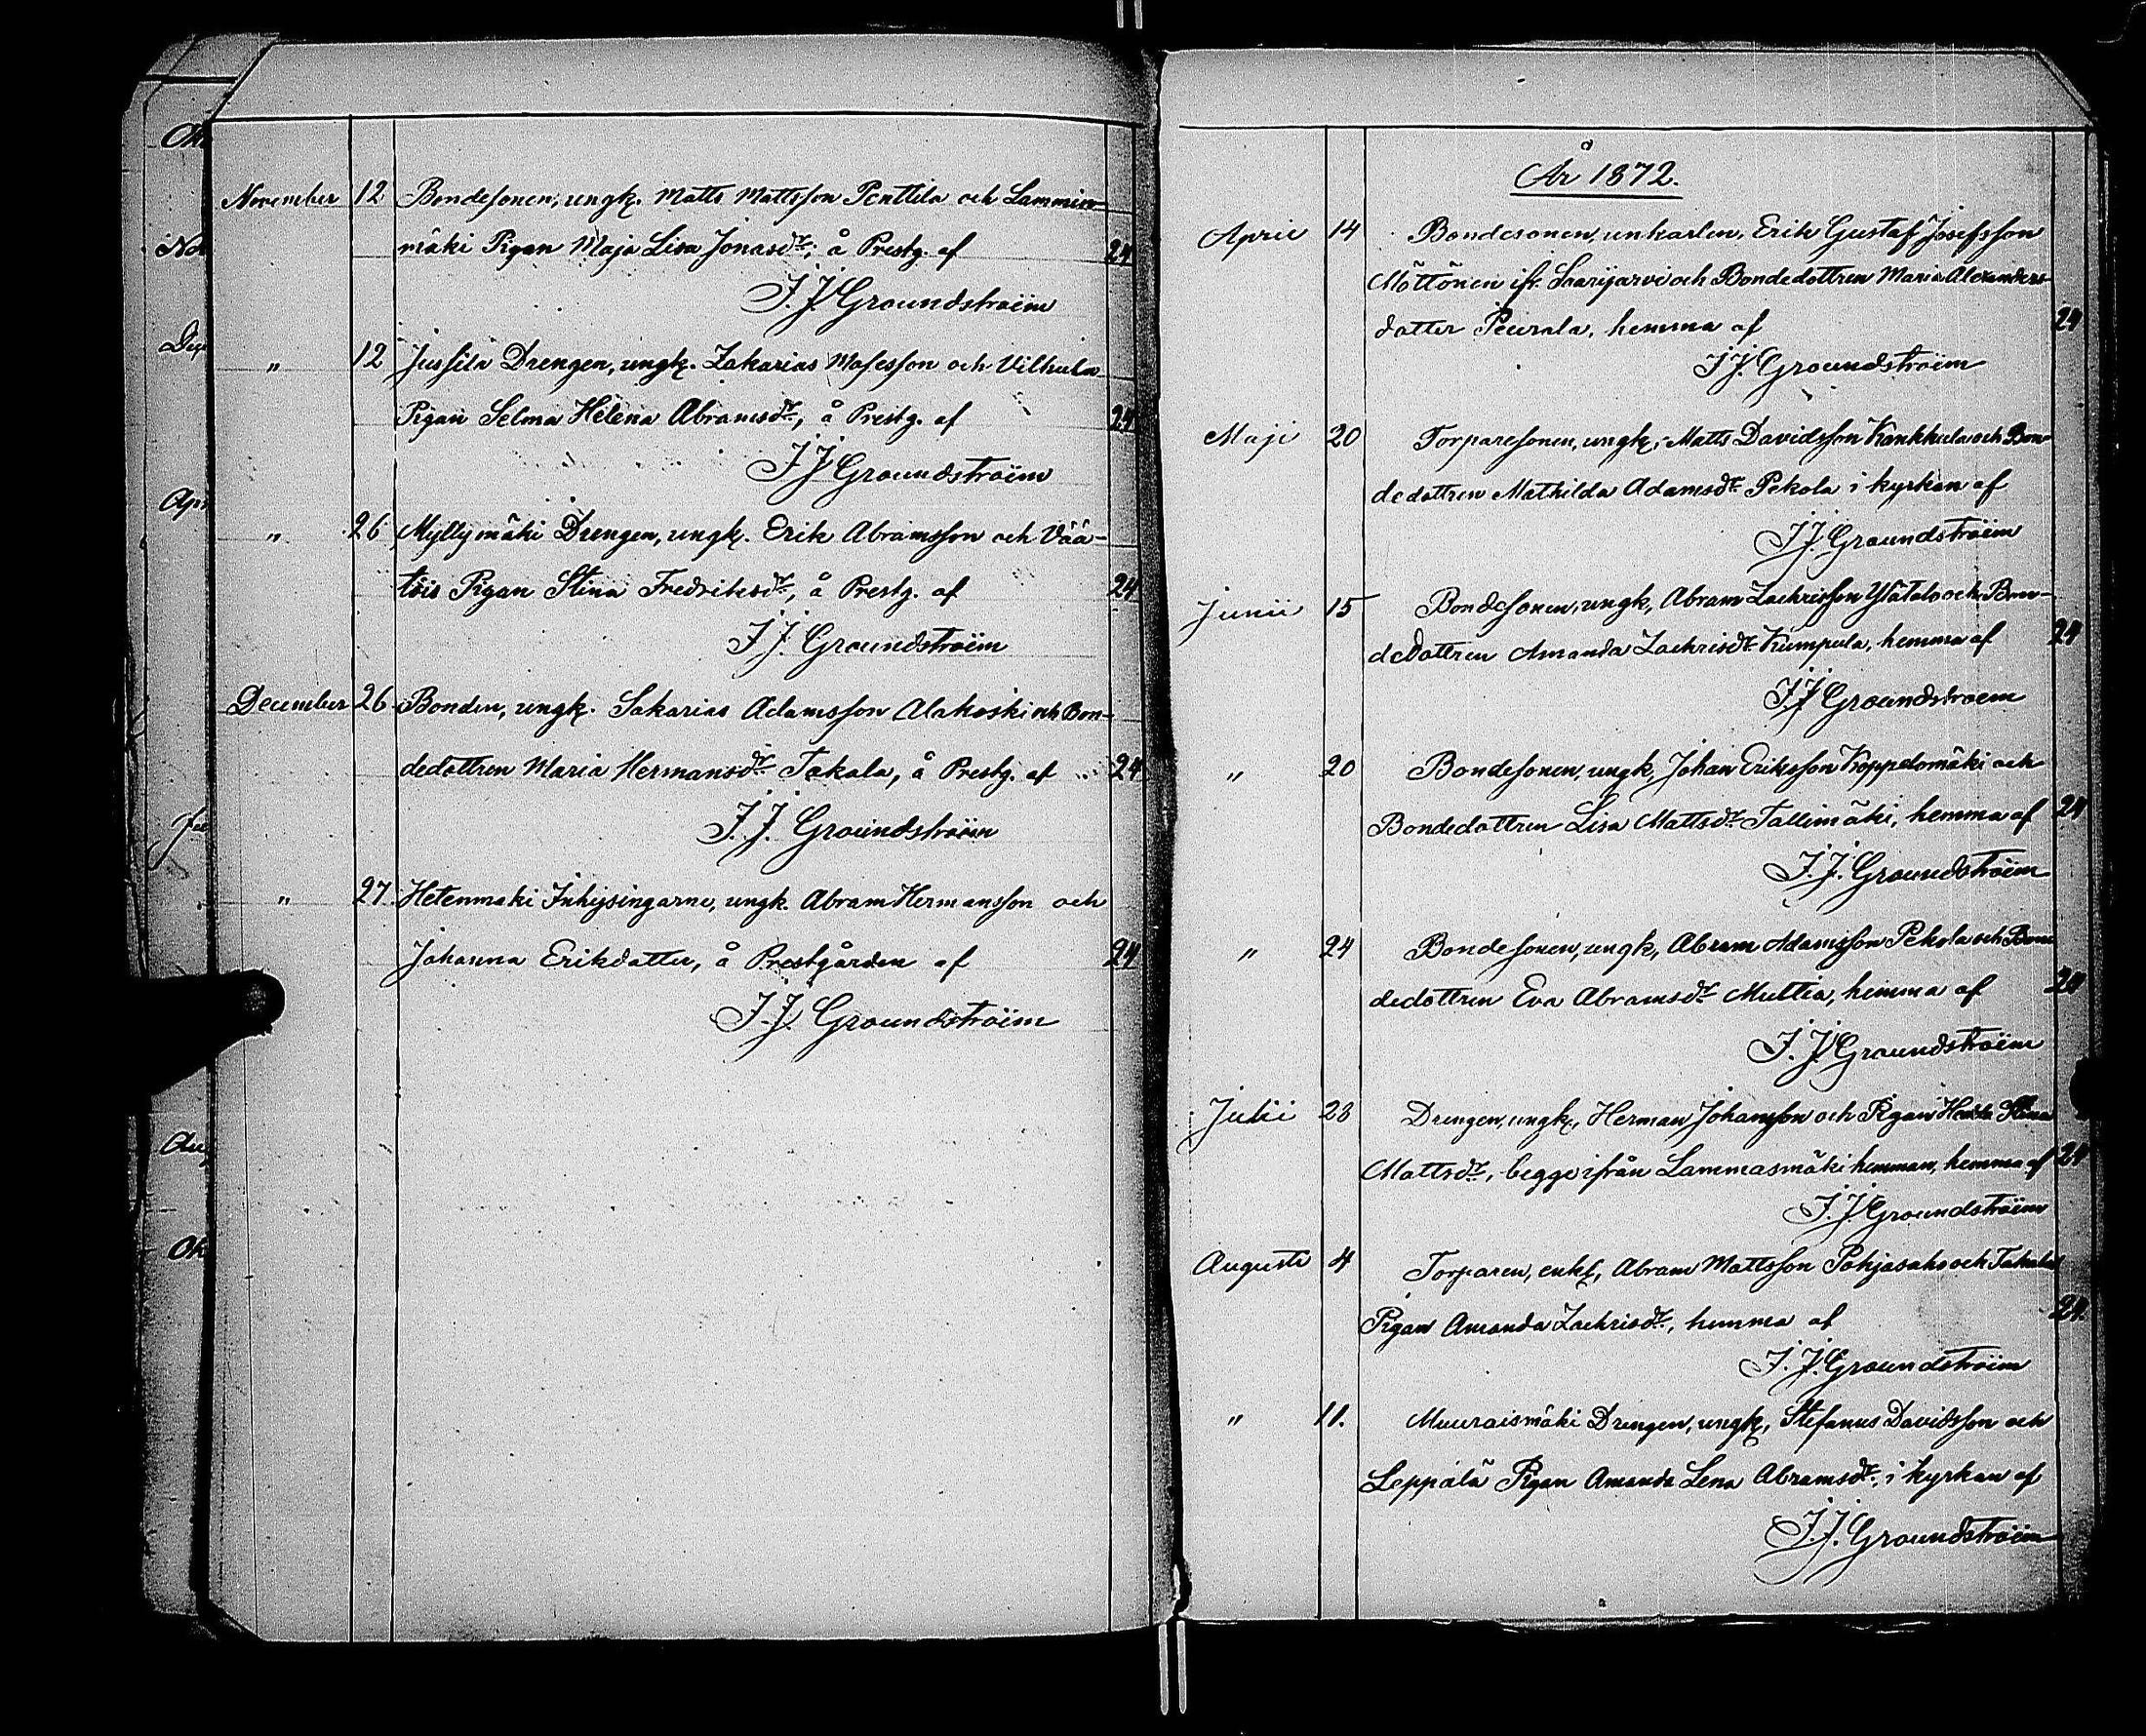 November 12 Bondesonen, ungk. Matts Mattsson Penttila och Lammin-
mäki Pigan Maja Lisa Jonasdr, å Prestg. af 24
J. J. Groundstroëm
" 12 Jussila Drengen, ungk. Zakarias Mosesson och Vilkula
Pigan Selma Helena Abramsdr, å Prestg. af 24
J J Groundstroëm
" 26 Myllymäki Drengen, ungk. Erik Abramsson och Vää-
täis Pigan Stina Fredriksdr, å Prestg. af 24
J. J. Groundstroëm
December 26 Bonden, ungk. Sakarias Adamsson Alakoski och Bon-
dedottren Maria Hermansdr Takala, å Prestg. af 24
J. J. Groundstroëm
" 27. Hetenmaki Inhysingarne, ungk. Abram Hermansson och
Johanna Erikdatter, å Prestgården af 24
J. J. Groundstroëm
År 1872.
April 14 Bondesonen, unkarlen, Erik Gustaf Josefsson
Möttönen ifr. Saarijarvi och Bondedottren Maria Alexanders-
datter Peurala, hemma af 24
J J. Groundstroëm
Maji 20 Torparesonen, ungk, Matts Davidsson Kankkula och Bon
dedottren Mathilda Adamsdr Pekola i kyrkan af
J J. Groundstroëm
Junii 15 Bondesonen, ungk, Abram Zachrisson Ylätalo och Bon-
dedottren Amanda Zachrisdr Kumpula, hemma af 24
J J Groundstroem
" 20 Bondesonen, ungk, Johan Eriksson Koppelomäki och
Bondedottren Lisa Mattsdr Tallimäki, hemma af 24
J. J. Groundstroëm
" 24 Bondesonen, ungk, Abram Adamsson Pekola och Bon
dedottren Eva Abramsdr Multia, hemma af 24
J. J. Groundstroëm
Julii 28 Drengen, ungk, Herman Johansson och Pigan Stina
Mattsdr, begge ifrån Lammasmäki hemman, hemma af 24
J. J. Groundstroëm
Augusti 4 Torparen, enkl, Abram Mattsson Pohjasaho och Takala
Pigan Amanda Zachrisdr, hemma af 24.
J. J. Groundstroëm
" 11. Muuraismäki Drengen, ungk, Stefanus Davidsson och
Leppälä Pigan Amanda Lena Abramsdr, i kyrkan af
J. J. Groundstroëm